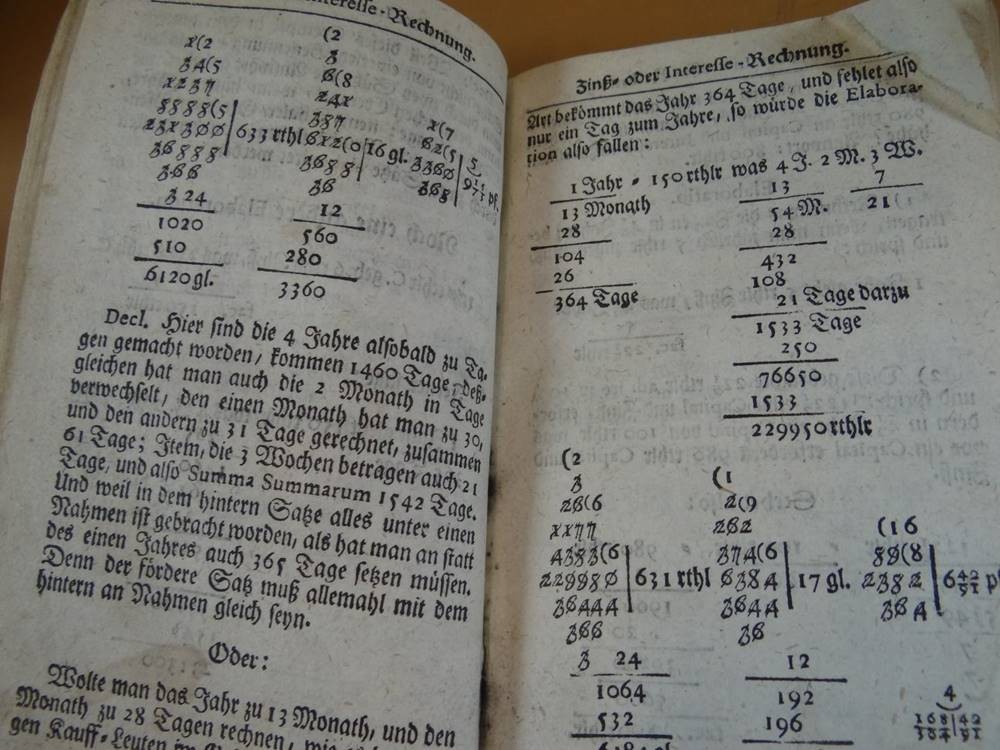 Interesse-Rechnung.
(2
x(2 3
34(5 6(8
x237 24x
8888(5 387 x(7
23x300 | 633 rthl 6x2(0 | 16 gl. 3360
36888 3688 368
366 36
3 24 12
1020 560
510 280
6120 gl. 3360
Decl. Hier sind die 4 Jahre alsobald zu Ta-
gen gemacht worden / kommen 1460 Tage, deß-
gleichen hat man auch die 2 Monath in Tage
verwechselt, den einen Monath hat man zu 30,
und den andern zu 31 Tage gerechnet, zusammen
61 Tage; Item, die 3 Wochen betragen auch 21
Tage, und also Summa Summarum 1542 Tage.
Und weil in dem hintern Satze alles unter einen
Nahmen ist gebracht worden, als hat man an statt
des einen Jahres auch 365 Tage setzen müssen.
Denn der fördere Satz muß allemahl mit dem
hintern an Nahmen gleich seyn.
Oder:
Wolte man das Jahr zu 13 Monath, und den
Monath zu 28 Tagen rechnen,
gen Kauff-Leuten
Zinß- oder Interesse-Rechnung.
Art bekömmt das Jahr 364 Tage, und fehlet also
nur ein Tag zum Jahre, so würde die Elabora-
tion also fallen:
1 Jahr - 150 rthlr was 4 J. 2 M. 3 W.
13 Monath 13 7
28 54 M. 21
104 28
26 432
364 Tage 108
21 Tage darzu
1533 Tage
250
76650
1533
229950 rthlr
(2
3 (1
26(6 2(9
xx77 262 (16
4383(6 374(6 89(8
229980 | 631 rthl 6384 | 17 gl. 2382 | 6 42/91 pf
36444 3644 364
366 36
3 24 12
1064 192
532 196
4
168|42
364|91